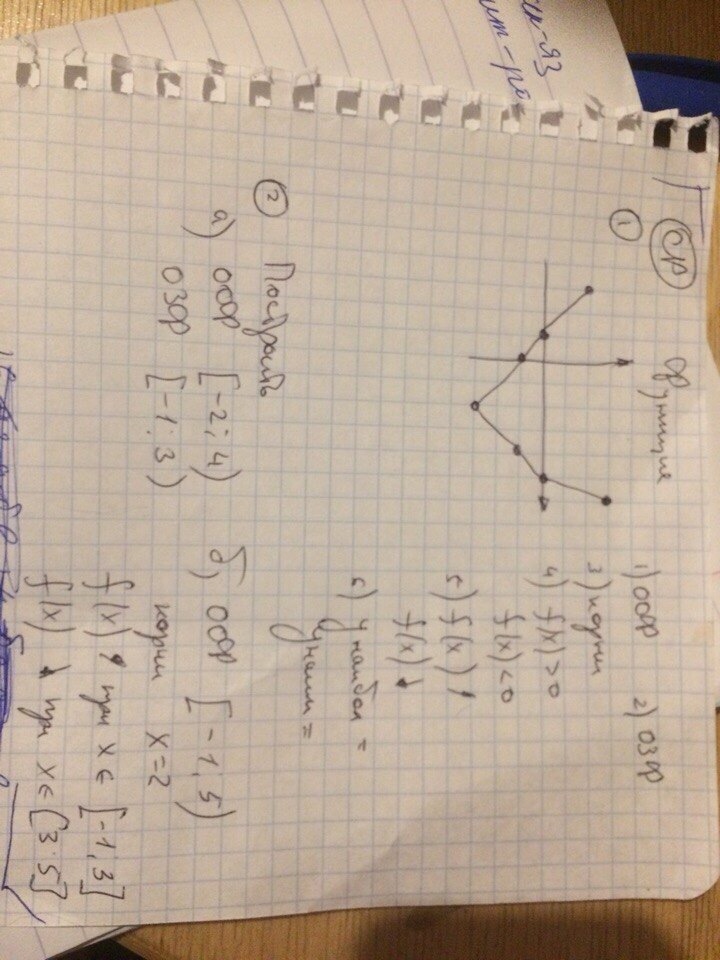 СР Функция
①
1) ООФ 2) ОЗФ
3) корни
4) f(x)>0
f(x)<0
5) f(x)↗
f(x)↘
6) y наибол =
y наим =
② Построить
а) ООФ [-2; 4)
ОЗФ [-1; 3)
б) ООФ [-1; 5)
корни x=2
f(x)↗ при x ∈ [-1; 3]
f(x)↘ при x ∈ [3; 5]